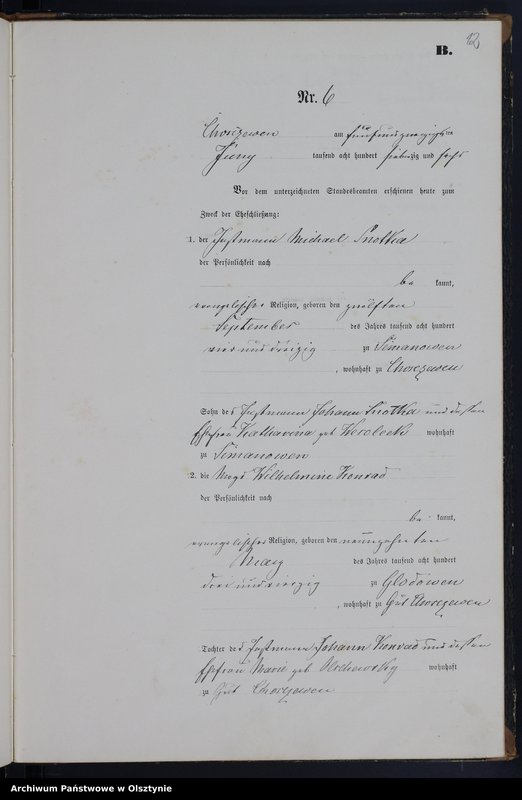 12
B.
Nr. 6
Chorczewen am fünfundzwanzigsten
Juny tausend acht hundert siebenzig und sechs
Vor dem unterzeichneten Standesbeamten erschienen heute zum
Zweck der Eheschließung:
1. der Instmann Michael Snottka
der Persönlichkeit nach
be kannt,
evangelischer Religion, geboren den zwölften
September des Jahres tausend acht hundert
vier und dreizig zu Simanowen
, wohnhaft zu Chorczewen
Sohn des Instmann Johann Snottka und dessen
Ehefrau Katharina geb wohnhaft
zu Simanowen
2. die Magd Wilhelmine Konrad
der Persönlichkeit nach
be kannt,
evangelischer Religion, geboren den neunzehnten
May des Jahres tausend acht hundert
drei und vierzig zu Glodowen
, wohnhaft zu Gut Chorczewen
Tochter des Instmann Johann Konrad und dessen
Ehefrau Marie geb wohnhaft
zu Gut Chorczewen
Archiwum Państwowe w Olsztynie